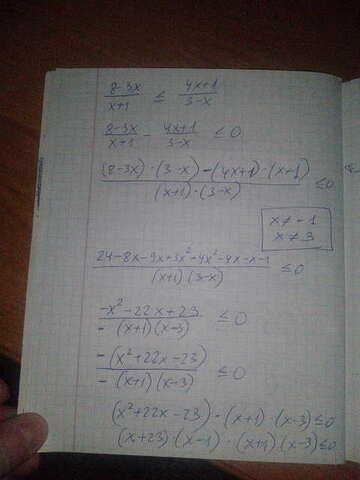 (8-3x)/(x+1) ≤ (4x+1)/(3-x)
(8-3x)/(x+1) - (4x+1)/(3-x) ≤ 0
((8-3x)·(3-x)-(4x+1)·(x+1))/((x+1)·(3-x)) ≤ 0
x≠-1
x≠3
(24-8x-9x+3x²-4x²-4x-x-1)/((x+1)(3-x)) ≤ 0
(-x²-22x+23)/(-(x+1)(x-3)) ≤ 0
(-(x²+22x-23))/(-(x+1)(x-3)) ≤ 0
(x²+22x-23)·(x+1)·(x-3)≤0
(x+23)·(x-1)·(x+1)·(x-3)≤0